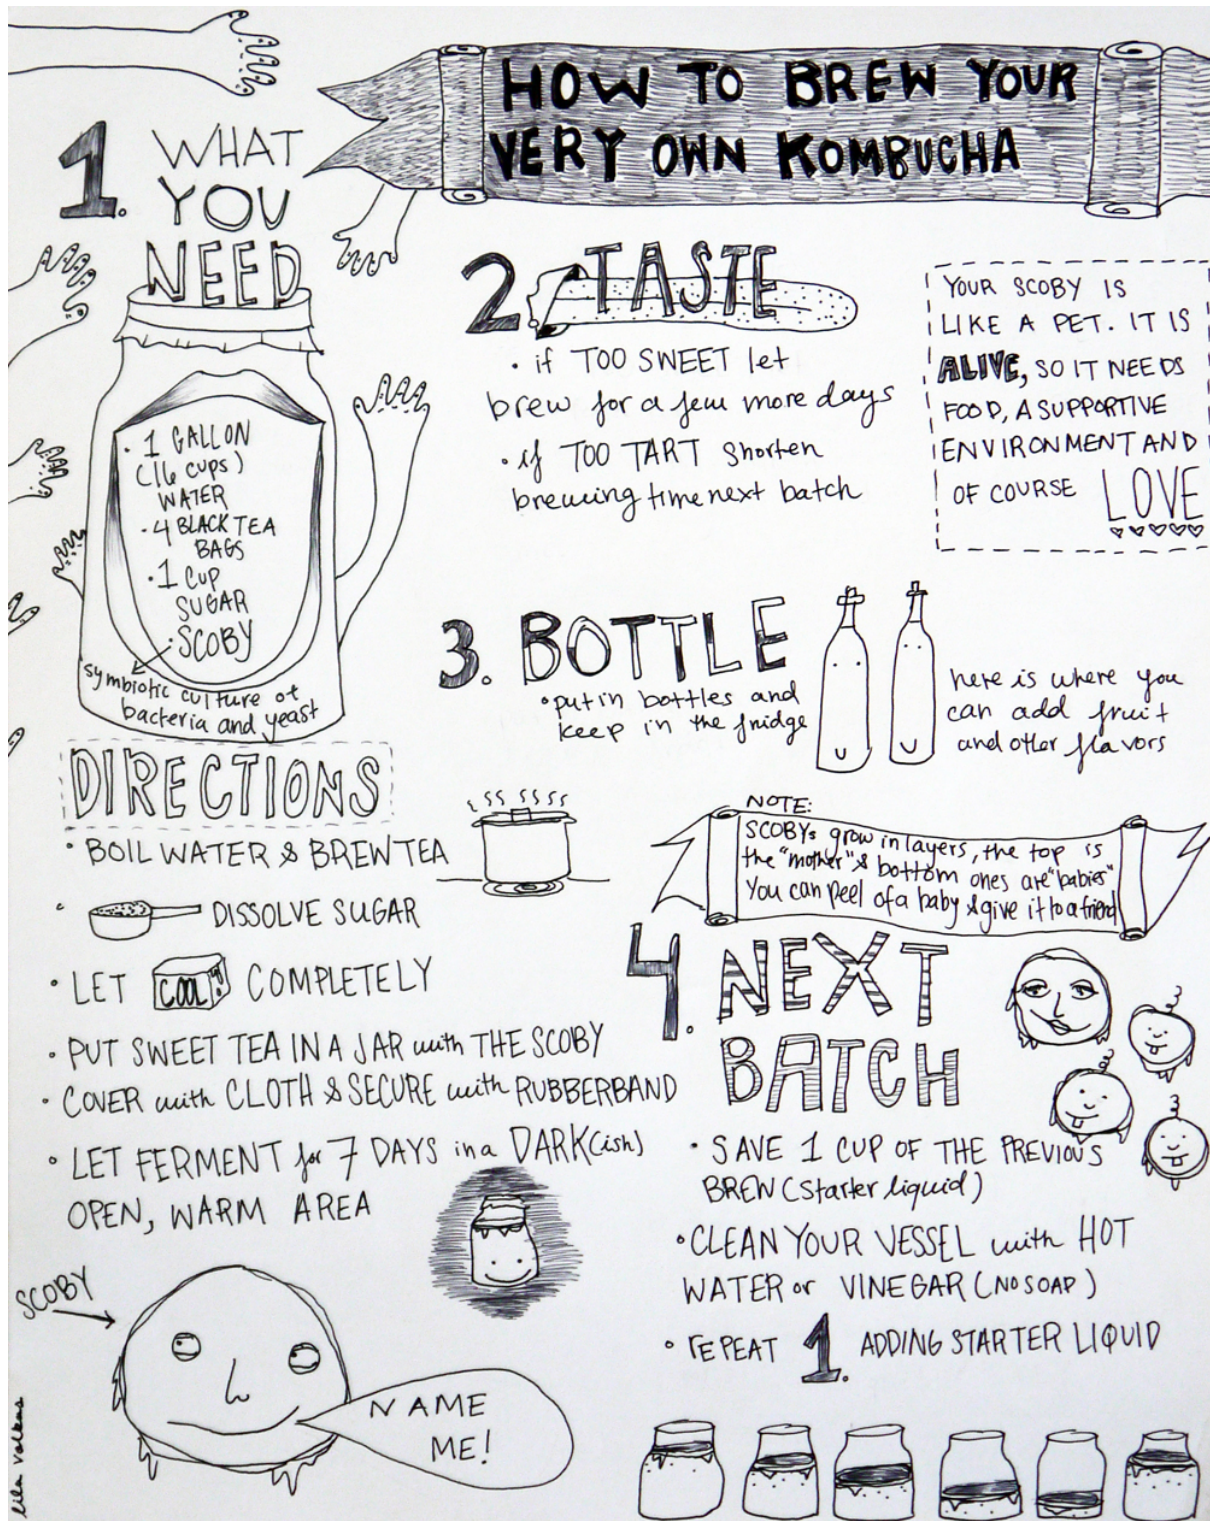 HOW TO BREW YOUR
VERY OWN KOMBUCHA
1. WHAT
YOU
NEED
· 1 GALLON
(16 cups)
WATER
· 4 BLACK TEA
BAGS
· 1 CUP
SUGAR
· SCOBY
symbiotic culture of
bacteria and yeast
DIRECTIONS
· BOIL WATER & BREW TEA
· DISSOLVE SUGAR
· LET COOL! COMPLETELY
· PUT SWEET TEA IN A JAR with THE SCOBY
· COVER with CLOTH & SECURE with RUBBERBAND
· LET FERMENT for 7 DAYS in a DARK(ish)
OPEN, WARM AREA
SCOBY
NAME
ME!
2. TASTE
· if TOO SWEET let
brew for a few more days
· if TOO TART shorten
brewing time next batch
YOUR SCOBY IS
LIKE A PET. IT IS
ALIVE, SO IT NEEDS
FOOD, A SUPPORTIVE
ENVIRONMENT AND
OF COURSE LOVE
3. BOTTLE
· put in bottles and
keep in the fridge
here is where you
can add fruit
and other flavors
NOTE:
SCOBYs grow in layers, the top is
the "mother" & bottom ones are "babies"
You can peel of a baby & give it to a friend
4. NEXT
BATCH
· SAVE 1 CUP OF THE PREVIOUS
BREW (starter liquid)
· CLEAN YOUR VESSEL with HOT
WATER or VINEGAR (NO SOAP)
· rEPEAT 1. ADDING STARTER LIQUID
lila volkas